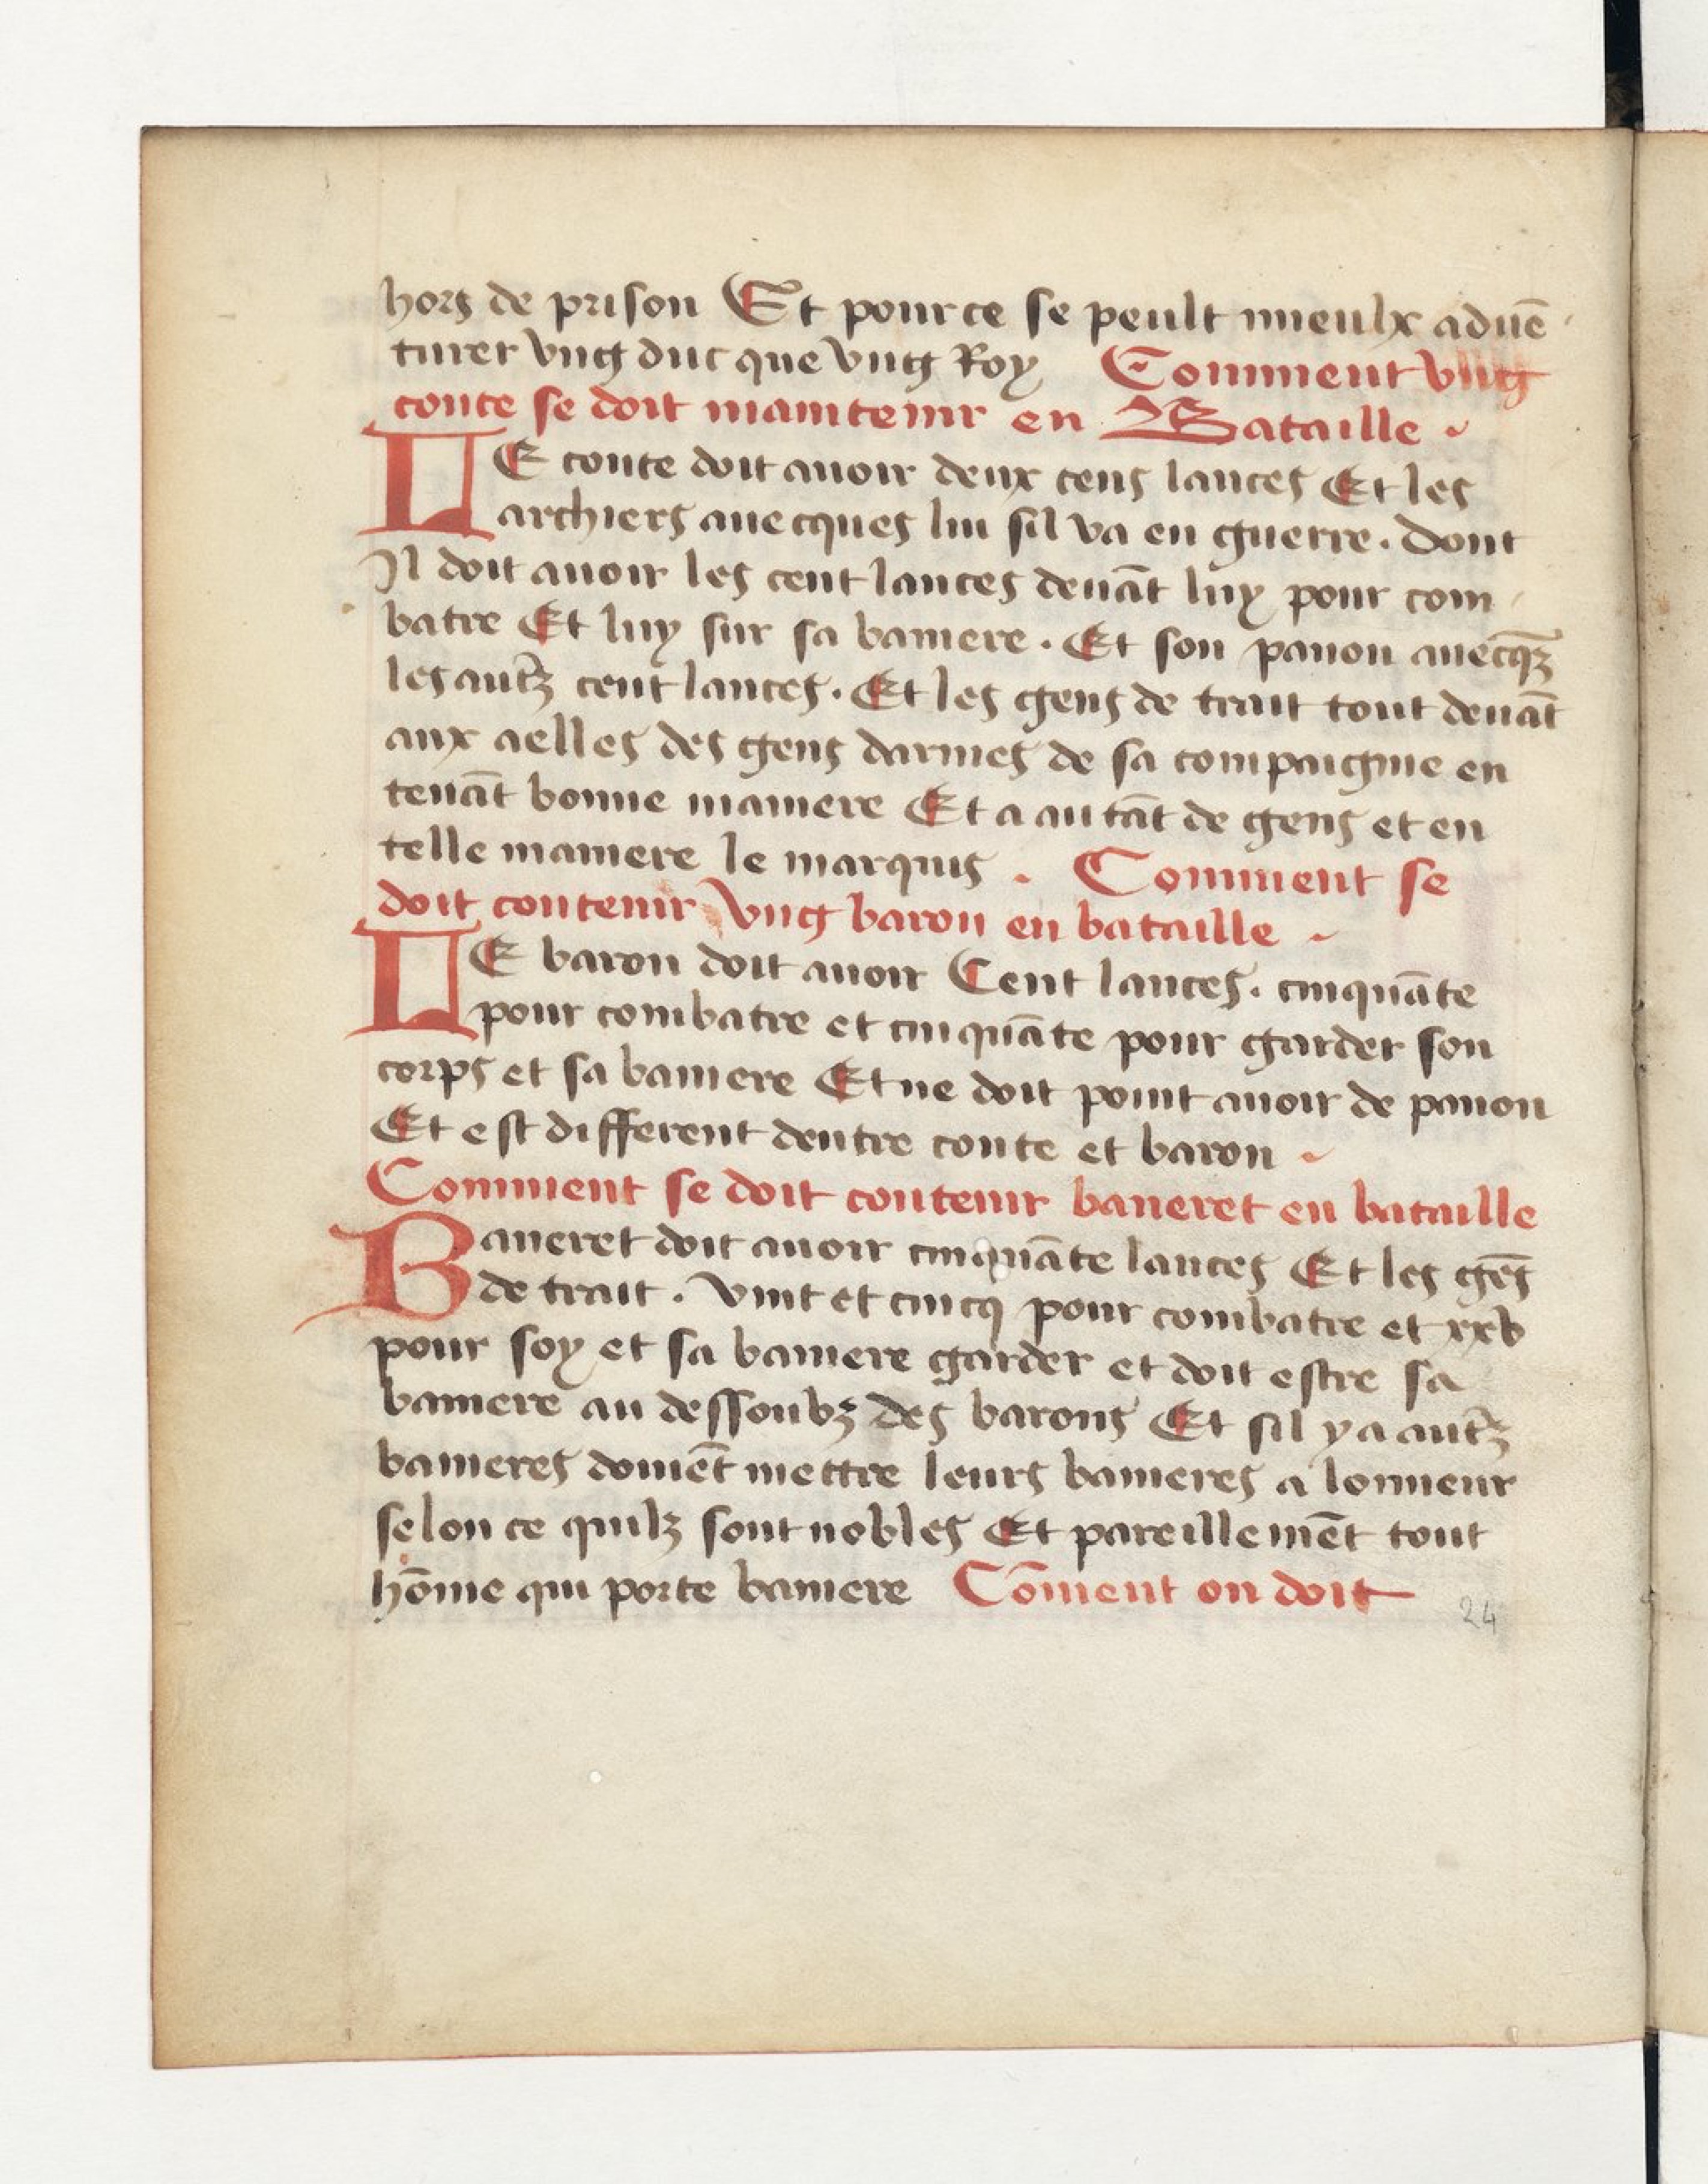 hors de prison Et pource se peult mieulx aduē
turer vng duc que vng Roy Comment vng
conte se doit maintenir en Bataille
LE conte doit auoir deux cens lances Et les
archiers auecques lui sil va en guerre. dont
Il doit auoir les cent lances deuāt luy pour com
batre Et luy sur sa baniere. Et son panon auecq̄ꝫ
les autr̄ꝫ cent lances. Et les gens de trait tout deuāt
aux aelles des gens darmes de sa compaignie en
tenāt bonne maniere Et a autāt de gens et en
telle maniere le marquis. Comment se
doit contenir vng baron en bataille
LE baron doit auoir Cent lances. cinquāte
pour combatre et cinquāte pour garder son
corps et sa baniere Et ne doit point auoir de panon
Et est different dentre conte et baron
Comment se doit contenir baneret en bataille
Baneret doit auoir cinquāte lances Et les gēs
de trait. vint et cincq pour combatre et xxv
pour soy et sa baniere garder et doit estre sa
baniere au dessoubz des barons Et sil y a autr̄ꝫ
banieres doiuēt mettre leurs banieres a lonneur
selon ce quilz sont nobles Et pareillemēt tout
hōme qui porte baniere Cōment on doit
24